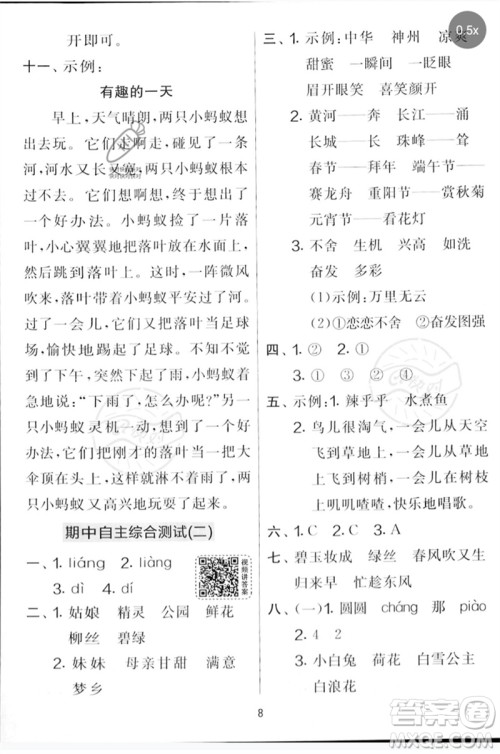 0.5x
开即可。
十一、示例：
有趣的一天
早上，天气晴朗，两只小蚂蚁想
出去玩。它们走啊走，看见了一条
河，河水又长又宽，两只小蚂蚁根本
过不去。它们想啊想，想出了一个
好办法。小蚂蚁捡了一片落叶，
小心翼翼地把落叶放到河水里，
然后跳到落叶上。这时，一阵微风
吹来，两只小蚂蚁平安过了河。
过了一会儿，它们把落叶当足球
场，愉快地踢起了足球。不知不觉
间，下起了雨，其中一只小蚂蚁着
急地说：“下雨了，怎么办呢？”另一
只小蚂蚁灵机一动，想到了一个
好办法。它们把刚才的落叶当大
伞顶在头上，这样就淋不着雨了。
小蚂蚁们又高兴地玩耍起来了。
期中自主综合测试(二)
一、1. liáng 2. liàng
3. dì 4. dí
视频讲答案
二、1. 姑娘 精灵 公园 鲜花
柳丝 碧绿
2. 妹妹 母亲 甘甜 满意
梦乡
三、1. 示例：中华 神州 凉爽
甜蜜 一瞬间 一眨眼
眉开眼笑 喜笑颜开
2. 黄河——奔 长江——涌
长城——长 珠峰——耸
春节——拜年 端午节——
赛龙舟 重阳节——赏秋菊
元宵节——看花灯
3. 不舍 生机 兴高 如洗
奋发 多彩
(1)示例：万里无云
(2)①恋恋不舍 ②奋发图强
四、1. ① ② 2. ①
3. ① ① ② ②
五、示例：1. 辣乎乎 水煮鱼
2. 鸟儿很淘气，一会儿从天
上飞到草地上，一会儿从草地
上飞到树梢，一会儿在树枝
上叽叽喳喳，快乐地唱歌。
六、1. C 2. C 3. A
七、1. 碧玉妆成 绿丝绦
2. 归来早 忙趁东风
八、(一)1. 圆圆 cháng 那 piào
2. 4 2
3. 小白兔 荷花 白雪公主
白浪花
8